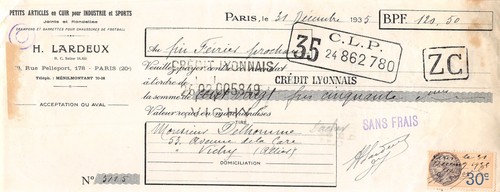 PETITS ARTICLES en CUIR pour INDUSTRIE et SPORTS
Joints et Rondelles
CRAMPONS ET BARRETTES POUR CHAUSSURES DE FOOTBALL
H. LARDEUX
Rue Pelleport, 178 - PARIS (20e)
Téléph. : MÉNILMONTANT
ACCEPTATION OU AVAL
N° 
PARIS, le 31 Décembre 1935
BPF. 120,50
Au fin Février prochain
35 C.L.P.
24 862 780
ZC
Veuillez payer
CRÉDIT LYONNAIS
à l'ordre de
CRÉDIT LYONNAIS
005849
la somme de cent vingt frs cinquante
Valeur reçue en marchandises
SANS FRAIS
TIRÉ
Monsieur Delhomme
53, avenue de la Gare
Vichy (Allier)
DOMICILIATION
30c